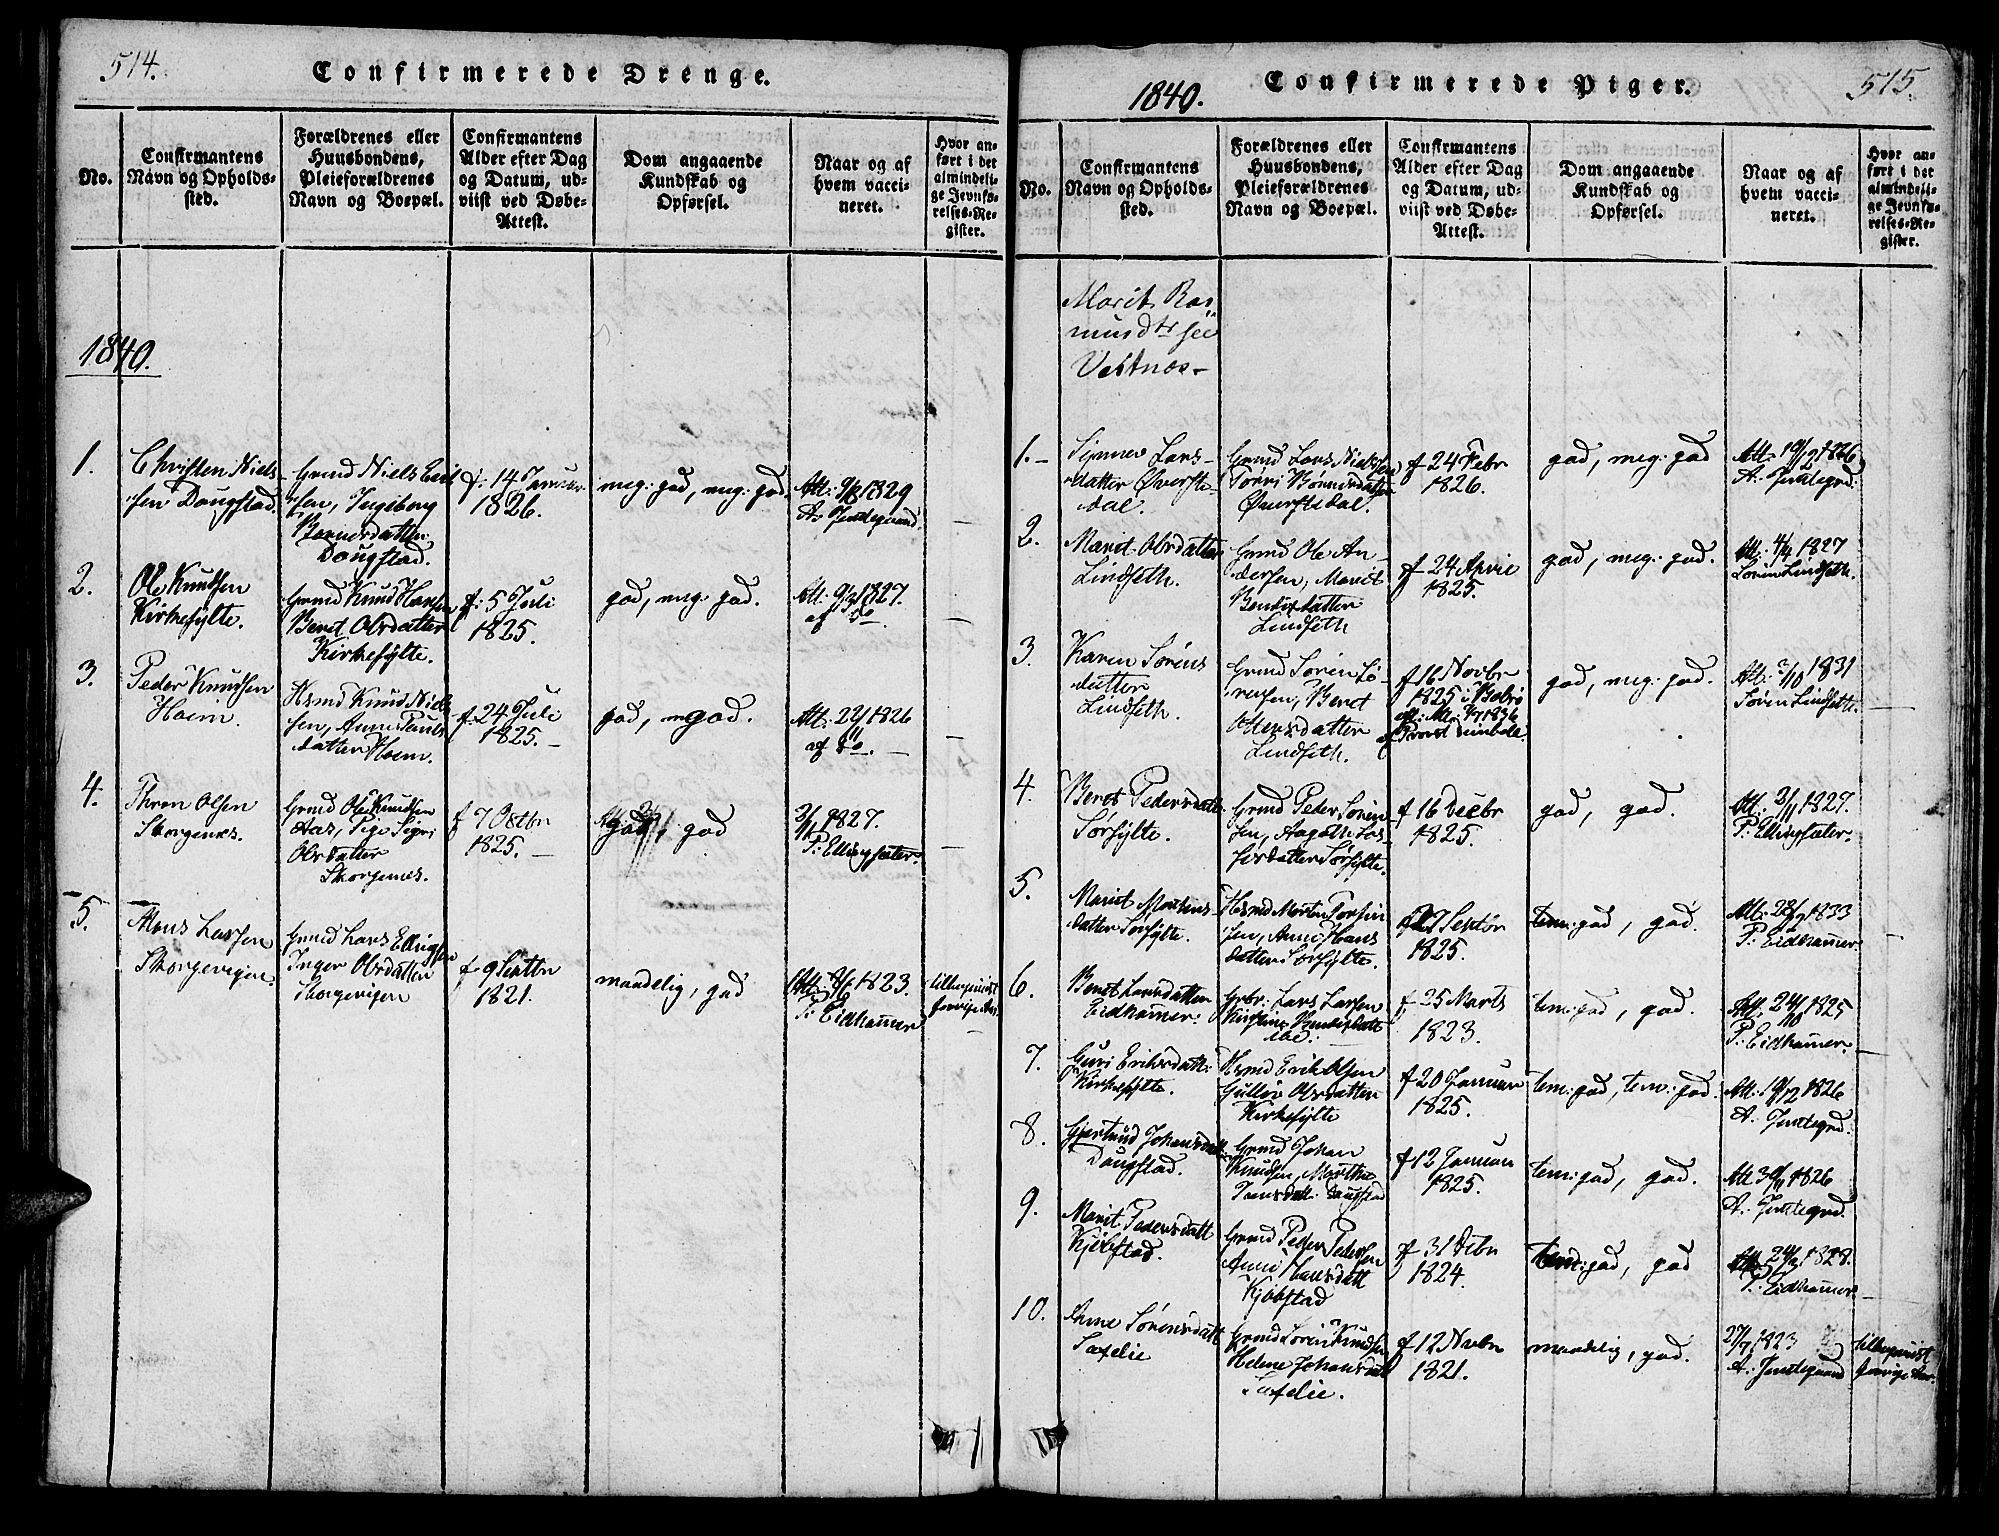 514.
Confirmerede Drenge.
No.
Confirmantens
Navn og Opholds-
sted.
Forældrenes eller
Huusbondens,
Pleieforældrenes
Navn og Boepæl.
Confirmantens
Alder efter Dag
og Datum, ud-
viist ved Døbe-
Attest.
Dom angaaende
Kundskab og
Opførsel.
Naar og af
hvem vacci-
neret.
Hvor an-
ført i det
almindeli-
ge Jevnfø-
relses-Re-
gister.
1840.
1.
Christen Niels
sen Dougstad.
Grmd Niels
sen, Ingeborg
Dougstad.
f: 14 Januar
1826.
meg: god, meg: god.
Att: 9/8 1829
2.
Ole Knudsen
Kirkefylte.
Grmd Knud Hansen
Beret Olsdatter
Kirkefylte.
f: 5 Juli
1825.
god, meg: god.
Att: 9/3 1827.
af do.
3.
Peder Knudsen
Hoim.
Hsmd Knud Niel
sen, Anne Pauls
datter Hoim.
f: 24 Juli
1825. -
god, mgod.
Att: 22/11 1826
af do. -
4.
Thron Olsen
Skorgenes.
Grmd Ole Knudsen
Aas, Pige Sigri
Olsdatter
Skorgenes.
f 7 Octbr
1825. -
god, god
3/11 1827.
P: Ellingsæter.
5.
Mons Larsen
Skorgevigen.
Grmd Lars Ellingsen
Inger Olsdatter
Skorgevigen
f 9 Septbr
1821.
maadelig, god
1823.
P: Eidhamer
515.
1840.
Confirmerede Piger.
No.
Confirmantens
Navn og Opholds-
sted.
Forældrenes eller
Huusbondens,
Pleieforældrenes
Navn og Boepæl.
Confirmantens
Alder efter Dag
og Datum, ud-
viist ved Døbe-
Attest.
Dom angaaende
Kundskab og
Opførsel.
Naar og af
hvem vacci-
neret.
Hvor an-
ført i det
almindeli-
ge Jevnfø-
relses-Re-
gister.
Marit Ras
mundtr see
Vestnes-
1.-
Synnev Lars-
datter Øverste-
dal.
Grmd Lars Nielssen
Øverstedal.
f 24 Febr
1826.
god, meg: god
Att: 19/2 1826
2.
Marit Olsdatter
Lindseth.
Grmd Ole An-
dersen, Marit
Bendixdatter
Lindseth
f 24 April
1825.
god, meg: god.
Att: 4/4 1827
Søren Lindseth.
3.
Karen Sørens
datter
Lindseth.
Grmd Søren Sø-
rensen, Beret
Lindseth.
f 16 Novbr
1825 i Bolsø
god, meg: god.
Att: 3/10 1831
Søren Lindseth.
4.
Beret Pedersdatt
Sørfylte.
Grmd Peder Søren
sen, Aagoth Las
sesdatter Sørfylte.
f 16 Decbr
1825.
god, god.
Att: 3/11 1827.
P: Ellingsæter.
5.
Marit Mortens-
datter Sørfylte.
Hsmd Morten Torsin
sen, Anne Hans
datter Sørfylte.
f 27 Septbr
1825.
tem: god, god.
1833
P: Eidhamer
6.
Beret Larsdatter
Eidhamer.
Grbr: Lars Larsen
Kirstine Bendixdatt
ibd:
f 25 Marts
1823.
tem: god, god.
Att: 24/10 1825
P: Eidhamer.
7.
Guri Eriksdatt:
Kirkefylte.
Hsmd Erik Olsen
Gullov Olsdatter
Kirkefylte
f 20 Januar
1825.
tem: god, tem: god.
Att: 19/12 1826
8.
Gjertrud Johansdatt
Dougstad.
Grmd Johan
Knudsen, Marthe
Jensdatt: Dougstad
f 12 Januar
1825.
tem: god, god.
Att 30/11 1826
9.
Marit Pedersdatt
Kjelbstad.
Grmd Peder Pedersen
Anne Larsdatt
Kjelbstad
f 31 Octbr
1824.
tem: god, god
Att: 24/3 1828.
P: Eidhamer
10.
Anne Sørensdatt
Saxelie
Grmd Søren Knudsen
Helene Johansdatt
Saxelie.
f 12 Novbr
1821.
maadelig, god.
27/7 1823